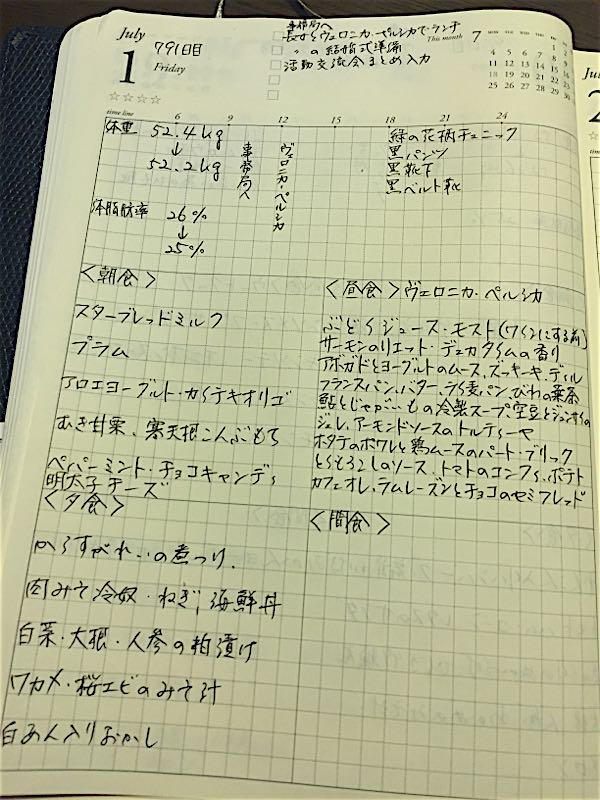 July
1
Friday
791日目
☆☆☆☆
事務局へ
長女とヴェロニカ・ペルシカでランチ
〃の結婚式準備
活動交流会まとめ入力
This month 7
MON TUE WED THU FRI SAT SUN
1 2 3
4 5 6 7 8 9 10
11 12 13 14 15 16 17
18 19 20 21 22 23 24
25 26 27 28 29 30
time line 6 9 12 15 18 21 24
体重 52.4kg
↓
52.2kg
体脂肪率 26%
↓
25%
事務局へ
ヴェロニカ・ペルシカ
緑の花柄チュニック
黒パンツ
黒靴下
黒ベルト靴
<朝食>
スターブレッドミルク
プラム
アロエヨーグルト・カテキオリゴ
むき甘栗、寒天根こんぶもち
ペパーミント・チョコキャンディ
明太子チーズ
<昼食>ヴェロニカ・ペルシカ
ぶどうジュース・モスト(ワインにする前)
サーモンのリエット・デュカタイムの香り
アボガドとヨーグルトのムース、ズッキーキ、ディル
フランスパン、バター、ライ麦パン、びわの葉茶
鮎とじゃがいもの冷製スープ、空豆とジュンサイの
ジュレ、アーモンドソースのトルティーヤ
ホタテのポワレと鶏ムースのパート・ブリック
とうもろこしのソース、トマトのコンフィ、ポテト
カフェオレ、ラムレーズンとチョコのセミフレッド
<夕食>
からすがれいの煮つけ
肉みそ冷奴・ねぎ、海鮮丼
白菜・大根・人参の粕漬け
ワカメ・桜エビのみそ汁
白あん入りおかし
<間食>